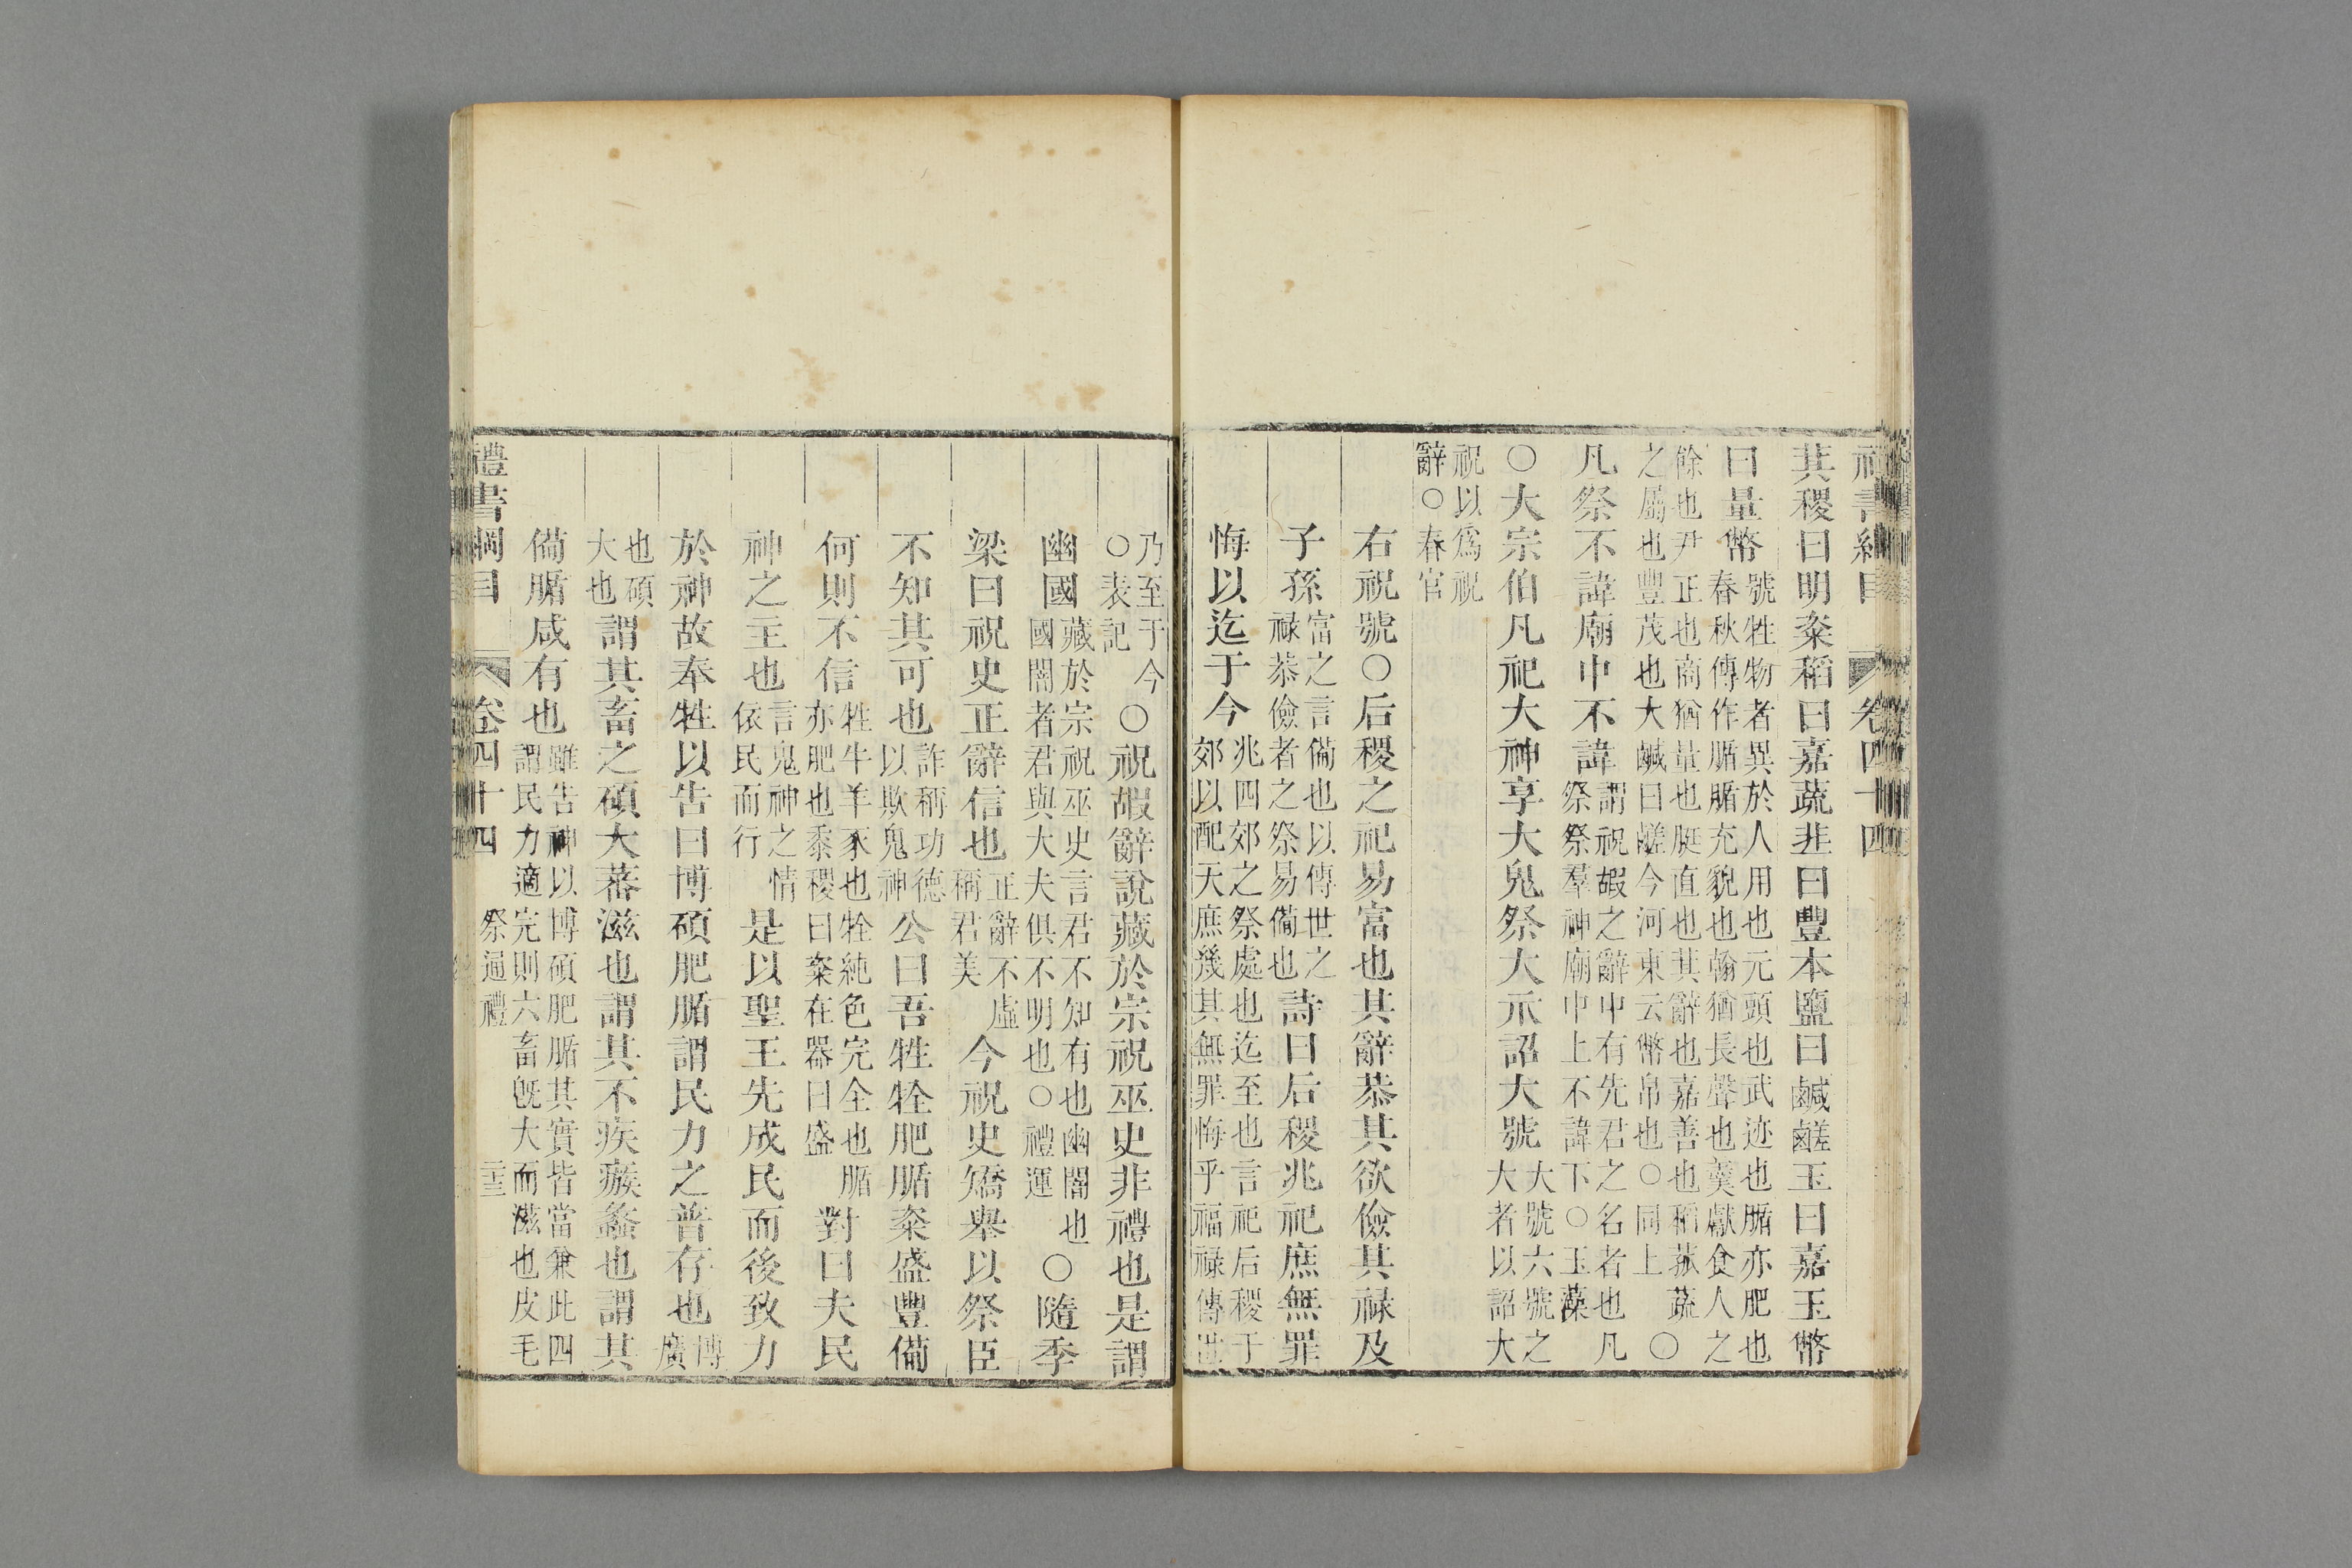 禮書綱目 卷四十四
萁稷曰明粢稻曰嘉蔬韭曰豐本鹽曰鹹鹺玉曰嘉玉幣
曰量幣號牲物者異於人用也元頭也武迹也腯亦肥也
春秋傳作腯腯充貌也翰猶長聲也羹獻食人之
餘也尹正也商猶量也脡直也其辭也嘉善也稻菰蔬
之屬也豐茂也大鹹曰鹺今河東云幣帛也○同上○
凡祭不諱廟中不諱謂祝嘏之辭中有先君之名者也凡
祭祭羣神廟中上不諱下○玉藻
○大宗伯凡祀大神享大鬼祭大示詔大號大號六號之
大者以詔大
祝以爲祝
辭○春官
右祝號○后稷之祀易富也其辭恭其欲儉其祿及
子孫富之言備也以傳世之
祿恭儉者之祭易備也詩曰后稷兆祀庶無罪
悔以迄于今兆四郊之祭處也迄至也言祀后稷于
郊以配天庶幾其無罪悔乎福祿傳世
乃至于今
○表記○祝嘏辭說藏於宗祝巫史非禮也是謂
幽國藏於宗祝巫史言君不知有也幽闇也
國闇者君與大夫俱不明也○禮運○隨季
梁曰祝史正辭信也正辭不虛
稱君美今祝史矯舉以祭臣
不知其可也詐稱功德
以欺鬼神公曰吾牲牷肥腯粢盛豐備
何則不信牲牛羊豕也牷純色完全也腯
亦肥也黍稷曰粢在器曰盛對曰夫民
神之主也言鬼神之情
依民而行是以聖王先成民而後致力
於神故奉牲以告曰博碩肥腯謂民力之普存也博
廣
也碩
大也謂其畜之碩大蕃滋也謂其不疾瘯蠡也謂其
備腯咸有也雖告神以博碩肥腯其實皆當兼此四
謂民力適完則六畜旣大而滋也皮毛
禮書綱目 卷四十四 祭通禮